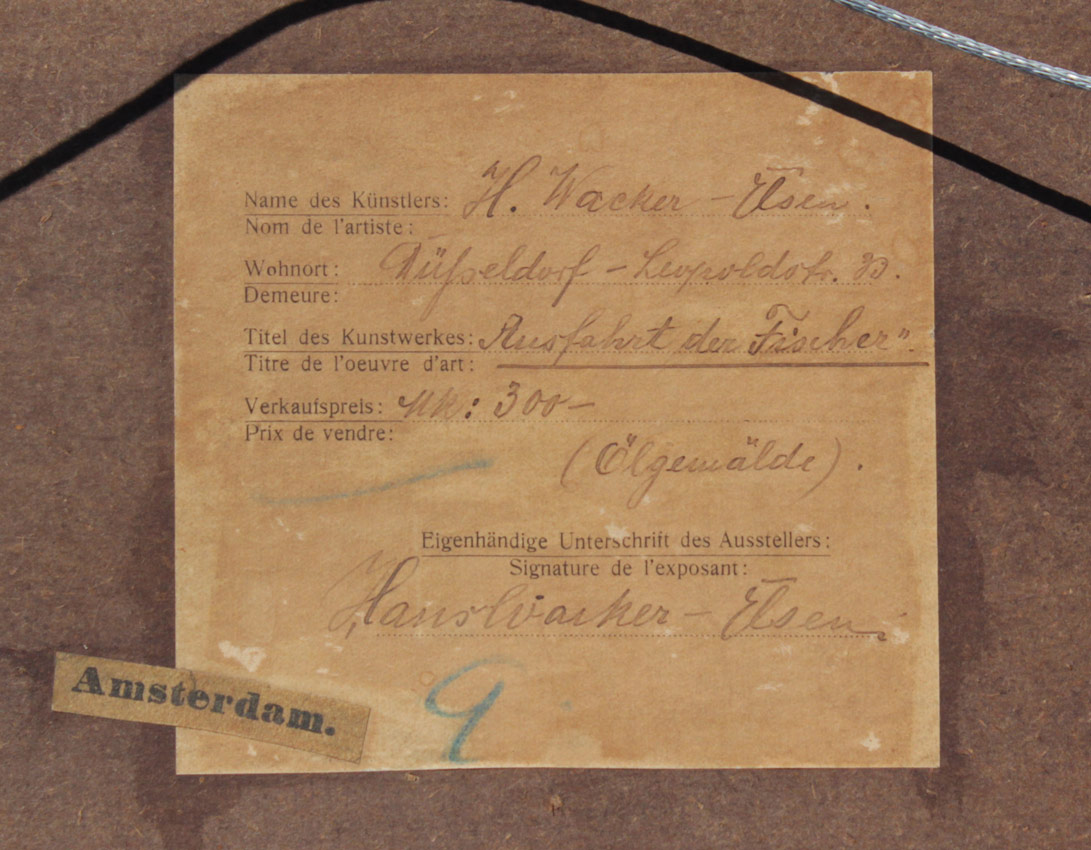 Name des Künstlers: H. Wacker – Elsen.
Nom de l'artiste:
Wohnort: Düsseldorf – Leopoldstr.
Demeure:
Titel des Kunstwerkes: Ausfahrt der Fischer".
Titre de l'oeuvre d'art:
Verkaufspreis: Mk: 300 –
Prix de vendre:
(Ölgemälde).
Eigenhändige Unterschrift des Ausstellers:
Signature de l'exposant:
Hans Wacker – Elsen.
Amsterdam.
9